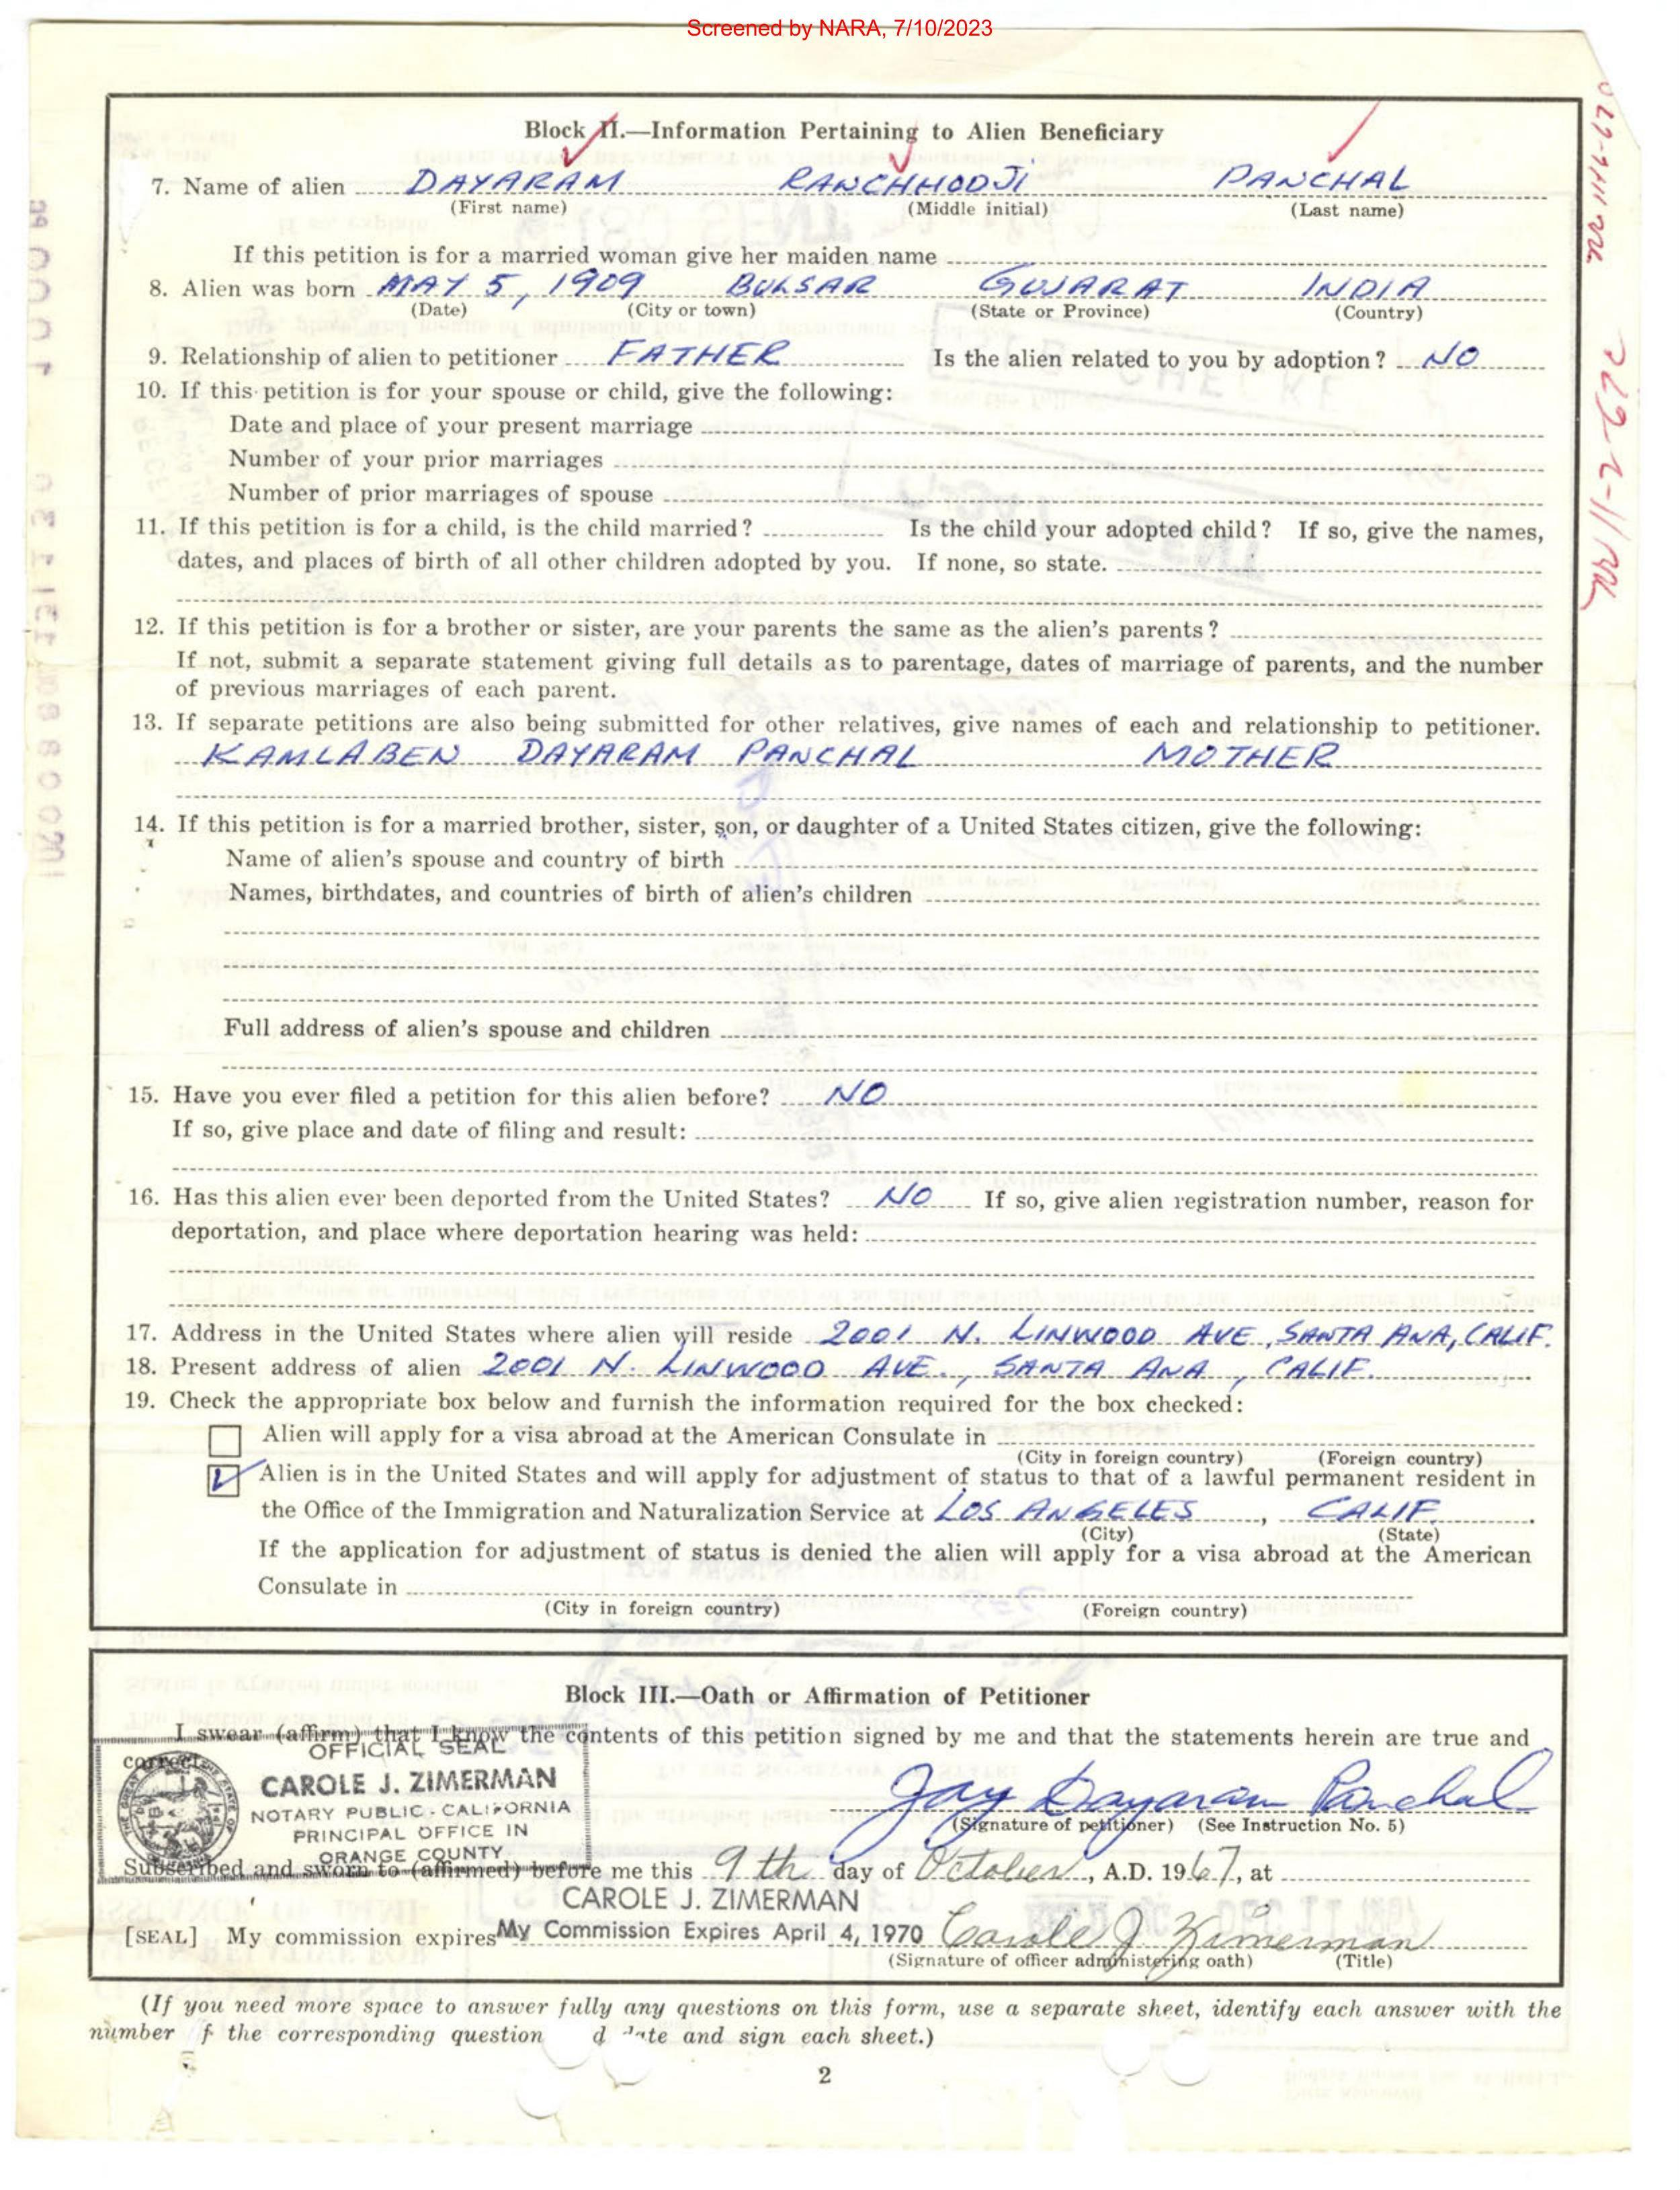 Screened by NARA, 7/10/2023
Block II.—Information Pertaining to Alien Beneficiary
7. Name of alien DAYARAM RANCHHODJI PANCHAL
(First name) (Middle initial) (Last name)
If this petition is for a married woman give her maiden name
8. Alien was born MAY 5, 1909 BULSAR GUJARAT INDIA
(Date) (City or town) (State or Province) (Country)
9. Relationship of alien to petitioner FATHER Is the alien related to you by adoption? NO
10. If this petition is for your spouse or child, give the following:
Date and place of your present marriage
Number of your prior marriages
Number of prior marriages of spouse
11. If this petition is for a child, is the child married? Is the child your adopted child? If so, give the names,
dates, and places of birth of all other children adopted by you. If none, so state.
12. If this petition is for a brother or sister, are your parents the same as the alien's parents?
If not, submit a separate statement giving full details as to parentage, dates of marriage of parents, and the number
of previous marriages of each parent.
13. If separate petitions are also being submitted for other relatives, give names of each and relationship to petitioner.
KAMLABEN DAYARAM PANCHAL MOTHER
14. If this petition is for a married brother, sister, son, or daughter of a United States citizen, give the following:
Name of alien's spouse and country of birth
Names, birthdates, and countries of birth of alien's children
Full address of alien's spouse and children
15. Have you ever filed a petition for this alien before? NO
If so, give place and date of filing and result:
16. Has this alien ever been deported from the United States? NO If so, give alien registration number, reason for
deportation, and place where deportation hearing was held:
17. Address in the United States where alien will reside 2001 N. LINWOOD AVE, SANTA ANA, CALIF.
18. Present address of alien 2001 N. LINWOOD AVE., SANTA ANA, CALIF.
19. Check the appropriate box below and furnish the information required for the box checked:
Alien will apply for a visa abroad at the American Consulate in
(City in foreign country) (Foreign country)
Alien is in the United States and will apply for adjustment of status to that of a lawful permanent resident in
the Office of the Immigration and Naturalization Service at LOS ANGELES, CALIF.
(City) (State)
If the application for adjustment of status is denied the alien will apply for a visa abroad at the American
Consulate in
(City in foreign country) (Foreign country)
Block III.—Oath or Affirmation of Petitioner
I swear (affirm) that I know the contents of this petition signed by me and that the statements herein are true and
correct.
OFFICIAL SEAL
CAROLE J. ZIMERMAN
NOTARY PUBLIC - CALIFORNIA
PRINCIPAL OFFICE IN
ORANGE COUNTY
Jay Dayaram Panchal
(Signature of petitioner) (See Instruction No. 5)
Subscribed and sworn to (affirmed) before me this 9th day of October, A.D. 1967, at
CAROLE J. ZIMERMAN
[SEAL] My commission expires My Commission Expires April 4, 1970 Carole J. Zimerman
(Signature of officer administering oath) (Title)
(If you need more space to answer fully any questions on this form, use a separate sheet, identify each answer with the
number f the corresponding question d ate and sign each sheet.)
2